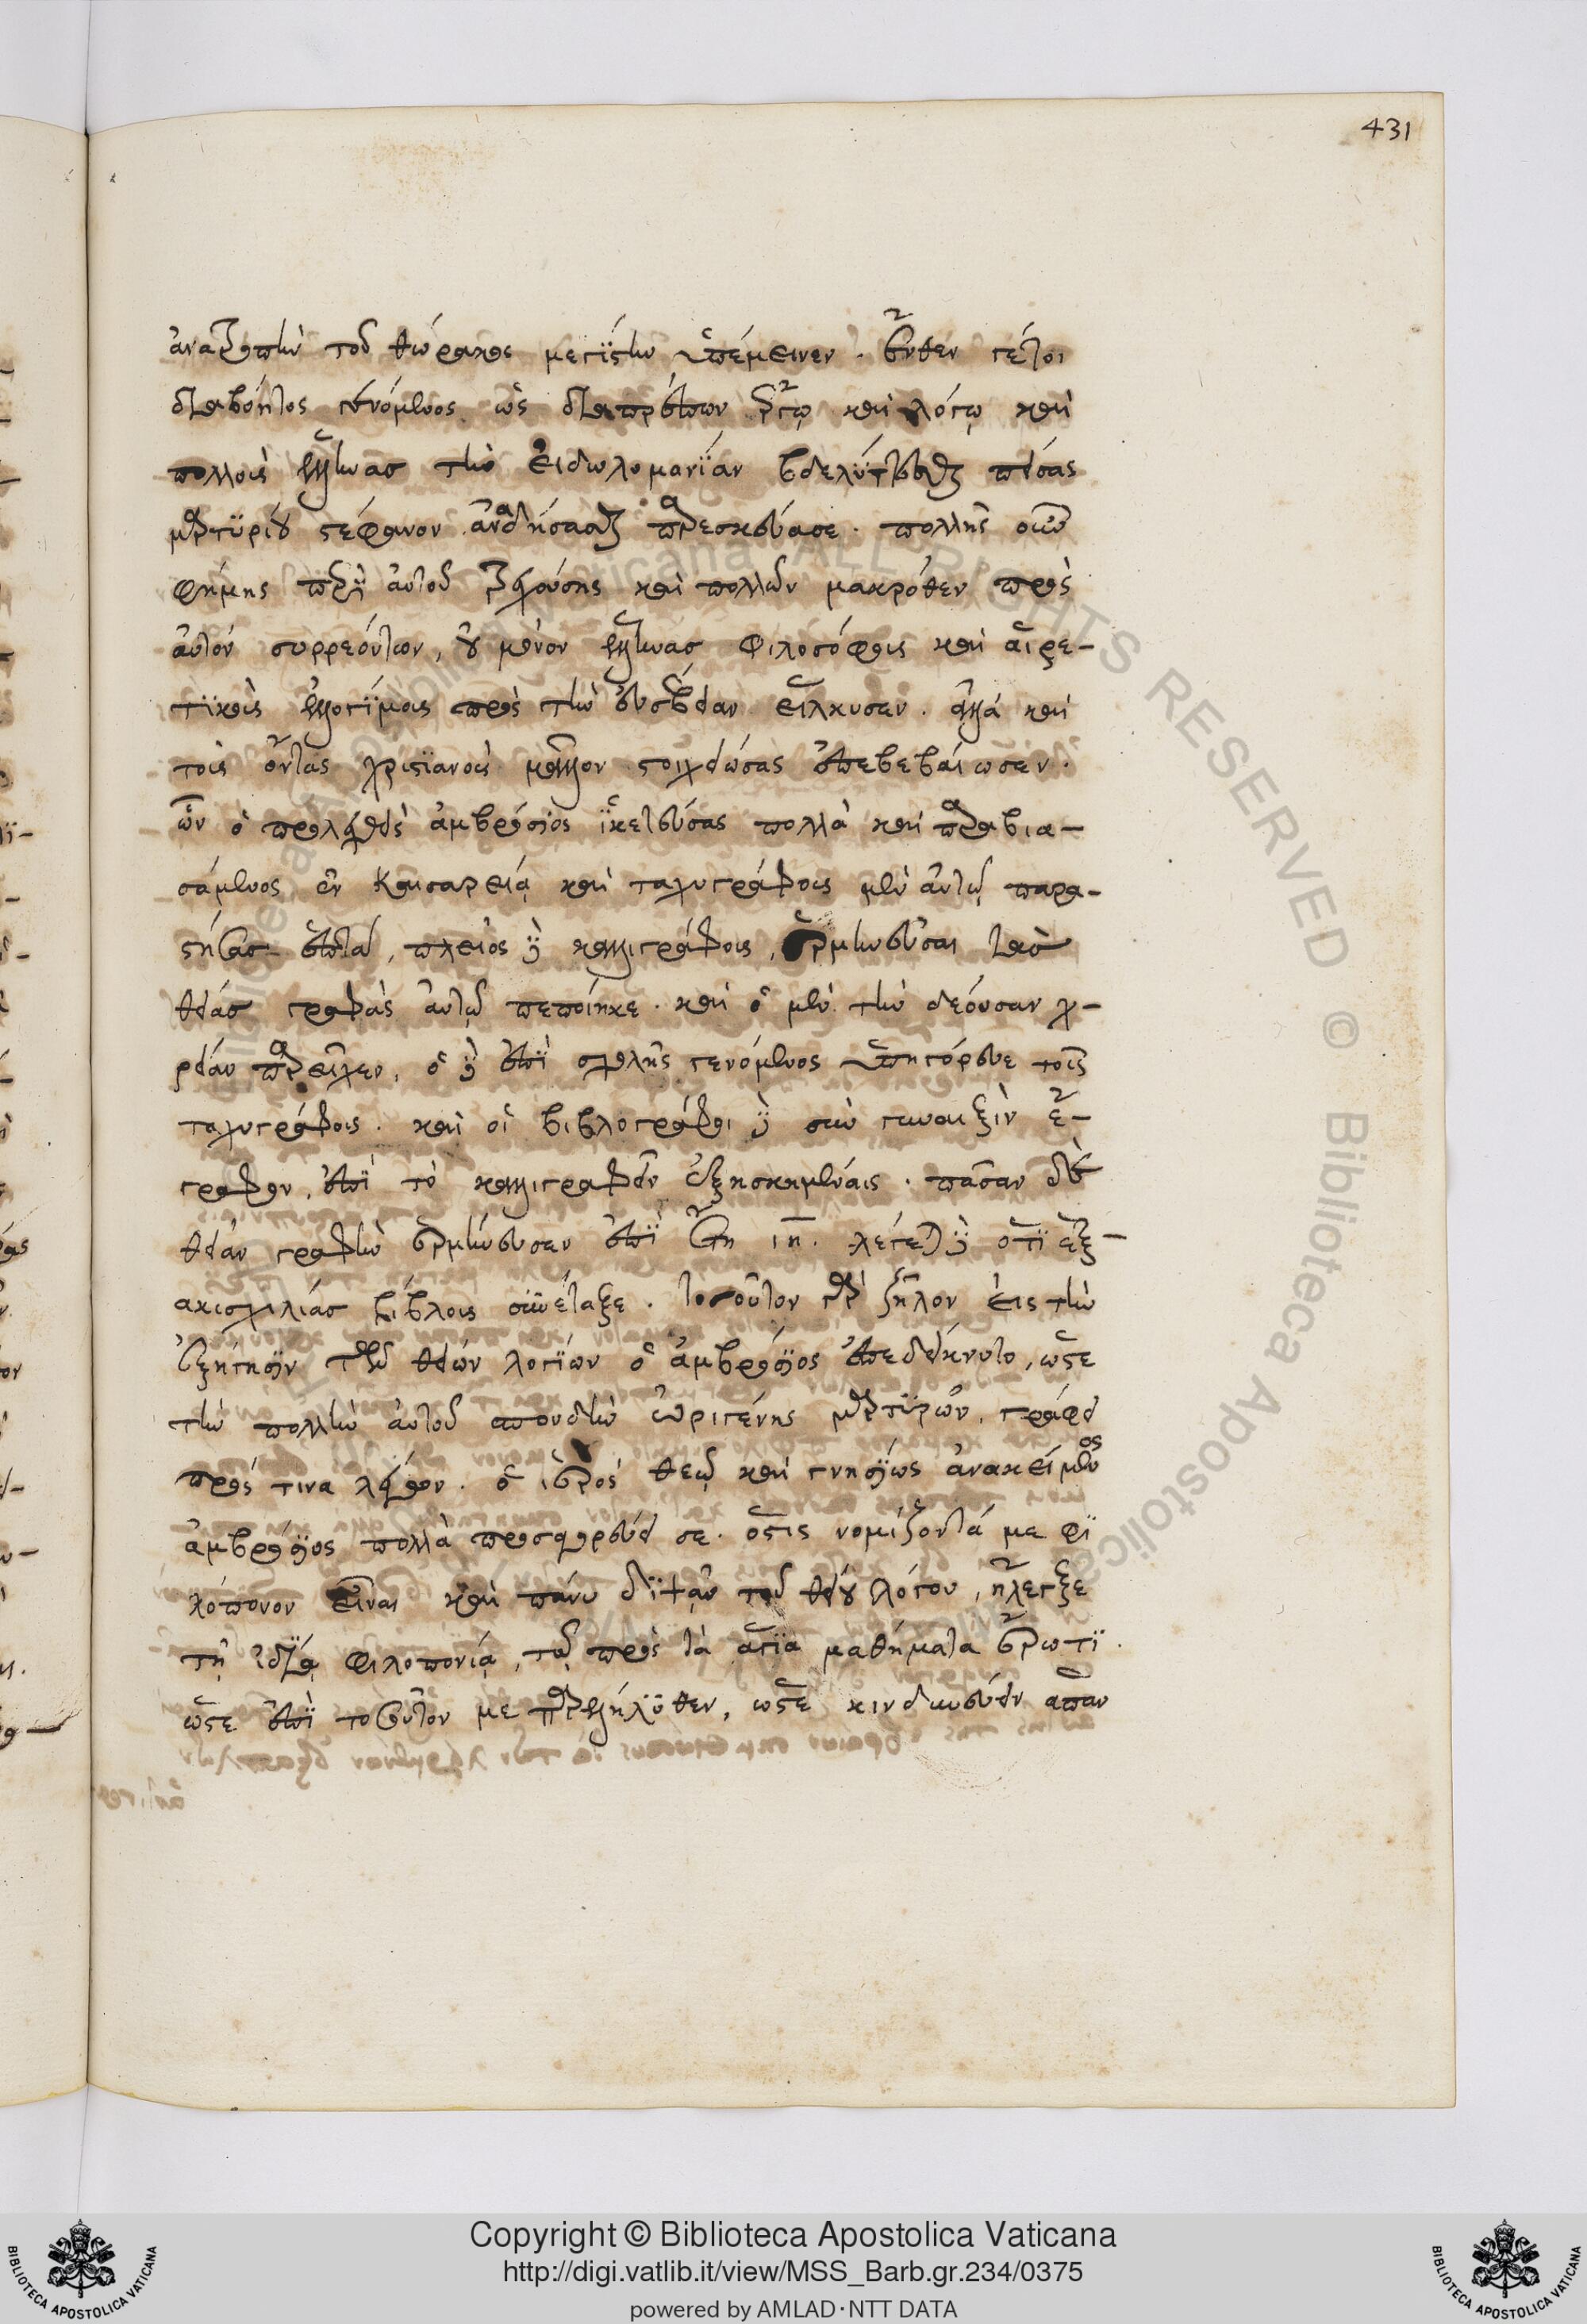 431
ἀνατροπὴν τοῦ θώρακος μεγίστην ὑπέμεινεν. ἔνθεν τέτοι
διαβόητος γενόμενος ὡς διαπρέπων ἔργῳ καὶ λόγῳ καὶ
πολλοὺς ἕλληνας τὴν εἰδωλομανίαν βδελύξασθαι πείσας
μαρτυρίου στέφανον ἀναδήσασθαι παρεσκεύασε. πολλῆς οὖν
φήμης περὶ αὐτοῦ τρεχούσης καὶ πολλῶν μακρόθεν πρὸς
αὐτὸν συρρεόντων, οὐ μόνον ἕλληνας φιλοσόφους καὶ αἱρε-
τικοὺς ἐλλογίμους πρὸς τὴν εὐσέβειαν εἵλκυσεν. ἀλλὰ καὶ
τοὺς ὄντας χριστιανοὺς μᾶλλον στοιχειώσας ἐπεβεβαίωσεν.
ὧν ὁ προλεχθεὶς ἀμβρόσιος ἱκετεύσας πολλὰ καὶ παραβια-
σάμενος ἐν Καισαρείᾳ καὶ ταχυγράφους μὲν αὐτῷ παρα-
στήσας ἑπτὰ, πλείους δὲ καλλιγράφους, ἑρμηνεῦσαι τὰς
θείας γραφὰς αὐτῷ πεποίηκε. καὶ ὁ μὲν τὴν δέουσαν χ-
ρείαν παρεῖχεν, ὁ δὲ ἐπὶ σχολῆς γενόμενος ὑπηγόρευε τοῖς
ταχυγράφοις. καὶ οἱ βιβλογράφοι δὲ σὺν γυναιξὶν ἔ-
γραφον, ἐπὶ τὸ καλλιγραφεῖν ἐξησκημέναις. πᾶσαν δὲ
θείαν γραφὴν ἑρμήνευσεν ἐπὶ ἔτη ιη. λέγεται δὲ ὅτι ἑξ-
ακισχιλίας βίβλους συνέταξε. τοσοῦτον γὰρ ζῆλον εἰς τὴν
ἐξήγησιν τῶν θείων λογίων ὁ ἀμβρόσιος ἐπεδείκνυτο, ὥστε
τὴν πολλὴν αὐτοῦ σπουδὴν ὠριγένης μαρτυρῶν, γράφει
πρός τινα λέγων. ὁ ἱερὸς θεῷ καὶ γνησίως ἀνακείμενος
ἀμβρόσιος πολλὰ προσαγορεύει σε. ὅστις νομίζοντά με φι
λόπονον εἶναι καὶ πάνυ διψᾶν τοῦ θείου λόγου, ἤλεγξε
τῇ ἰδίᾳ φιλοπονίᾳ, τῷ πρὸς τὰ ἅγια μαθήματα ἔρωτι.
ὥστε ἐπὶ τοσοῦτον με παρελήλυθεν, ὥστε κινδυνεύειν απαν
Copyright © Biblioteca Apostolica Vaticana
http://digi.vatlib.it/view/MSS_Barb.gr.234/0375
powered by AMLAD·NTT DATA